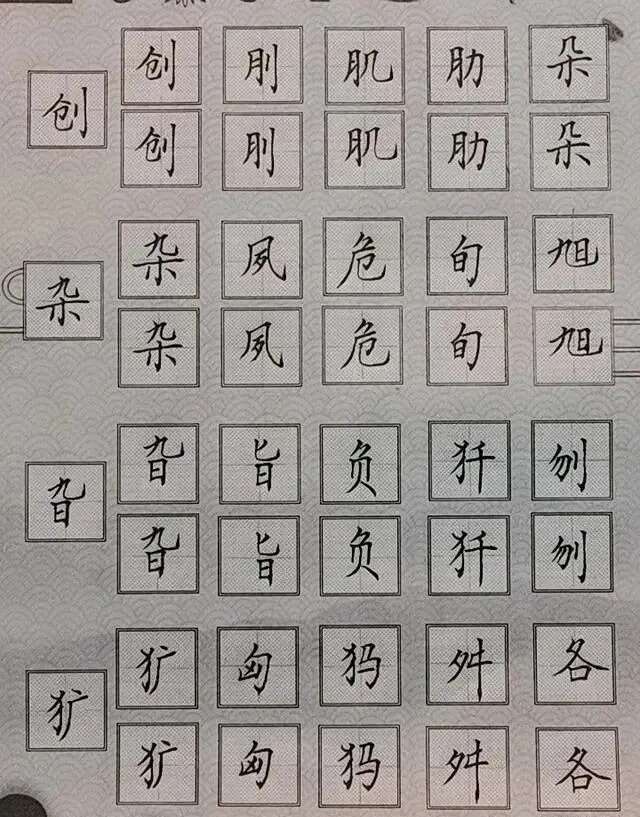 创
创 刖 肌 肋 朵
创 刖 肌 肋 朵
杂
杂 夙 危 旬 旭
杂 夙 危 旬 旭
旮
旮 旨 负 犴 刎
旮 旨 负 犴 刎
犷
犷 匈 犸 舛 各
犷 匈 犸 舛 各